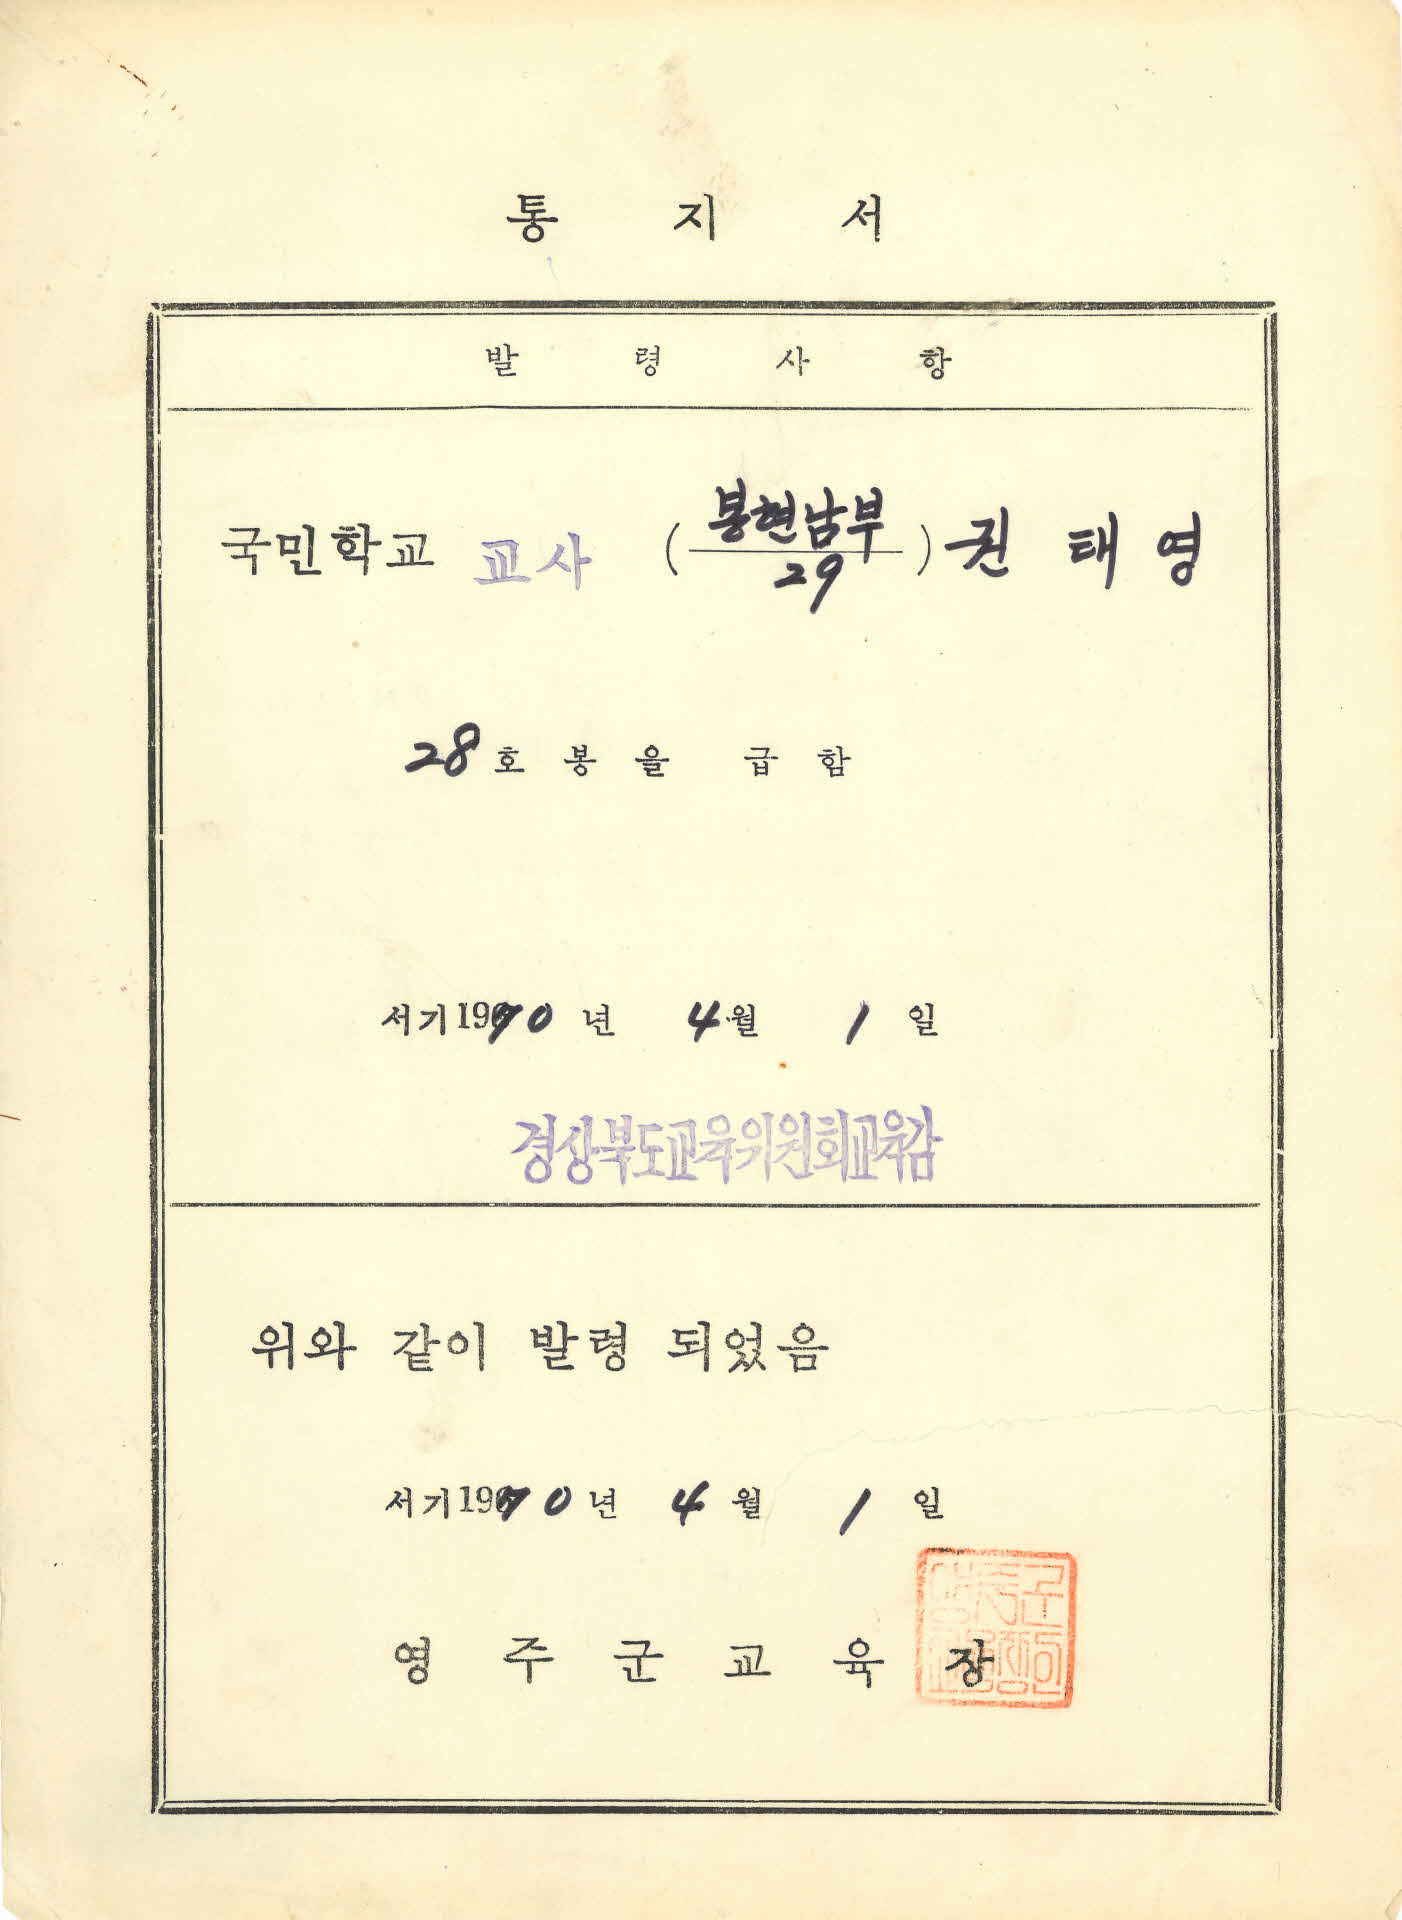 통 지 서
발 령 사 항
국민학교 교사 (봉현남부/29) 권 태 영
28 호 봉 을 급 함
서기 1970 년 4 월 1 일
경상북도교육위원회교육감
위와 같이 발령 되었음
서기 1970 년 4 월 1 일
영 주 군 교 육 장